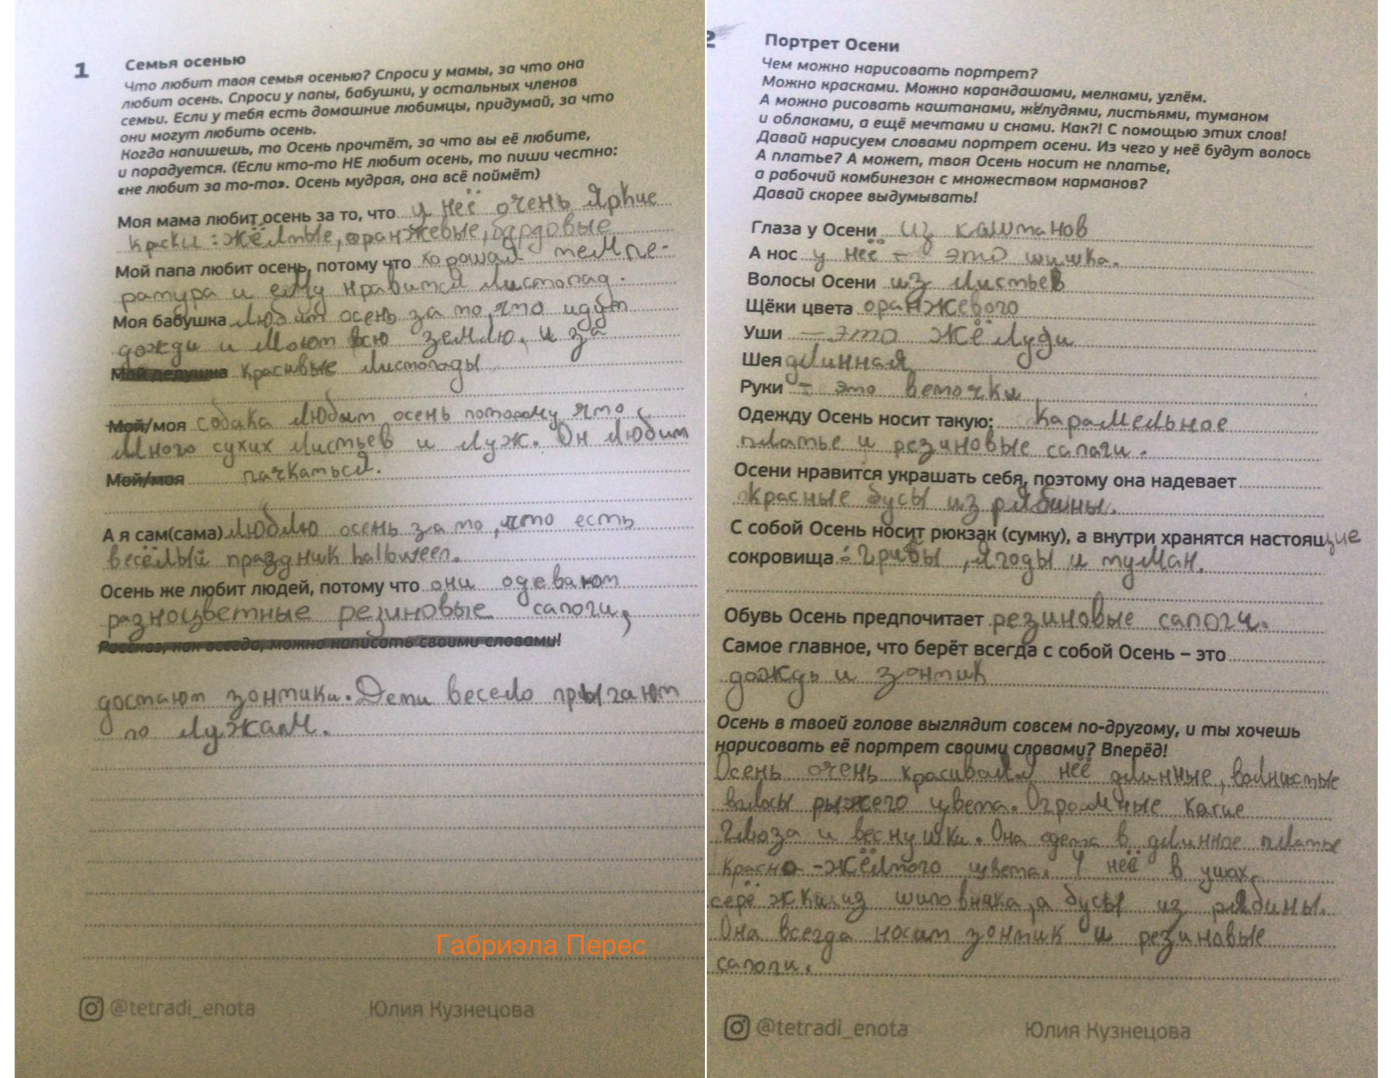 1
Семья осенью
Что любит твоя семья осенью? Спроси у мамы, за что она
любит осень. Спроси у папы, бабушки, у остальных членов
семьи. Если у тебя есть домашние любимцы, придумай, за что
они могут любить осень.
Когда напишешь, то Осень прочтёт, за что вы её любите,
и порадуется. (Если кто-то НЕ любит осень, то пиши честно:
«не любит за то-то». Осень мудрая, она всё поймёт)
Моя мама любит осень за то, что у неё очень яркие
краски: жёлтые, оранжевые, бардовые
Мой папа любит осень, потому что хорошая темпе-
ратура и ему нравится листопад.
Моя бабушка любит осень за то, что идут
дожди и моют всю землю, и за
Мой дедушка красивые листопады
Мой/моя собака любит осень потому что
много сухих листьев и луж. Он любит
Мой/моя пачкаться.
А я сам(сама) люблю осень за то, что есть
весёлый праздник halloween.
Осень же любит людей, потому что они одевают
разноцветные резиновые сапоги,
Рассказ, как всегда, можно написать своими словами!
достают зонтики. Дети весело прыгают
по лужам.
Габриэла Перес
@tetradi_enota Юлия Кузнецова
2
Портрет Осени
Чем можно нарисовать портрет?
Можно красками. Можно карандашами, мелками, углём.
А можно рисовать каштанами, жёлудями, листьями, туманом
и облаками, а ещё мечтами и снами. Как?! С помощью этих слов!
Давай нарисуем словами портрет осени. Из чего у неё будут волось
А платье? А может, твоя Осень носит не платье,
а рабочий комбинезон с множеством карманов?
Давай скорее выдумывать!
Глаза у Осени из каштанов
А нос у неё - это шишка.
Волосы Осени из листьев
Щёки цвета оранжевого
Уши - это жёлуди
Шея длинная
Руки - это веточки
Одежду Осень носит такую: карамельное
платье и резиновые сапоги.
Осени нравится украшать себя, поэтому она надевает
красные бусы из рябины.
С собой Осень носит рюкзак (сумку), а внутри хранятся настоящие
сокровища: грибы, ягоды и туман.
Обувь Осень предпочитает резиновые сапоги.
Самое главное, что берёт всегда с собой Осень – это
дождь и зонтик
Осень в твоей голове выглядит совсем по-другому, и ты хочешь
нарисовать её портрет своими словами? Вперёд!
Осень очень красивая. неё длинные, волнистые
волосы рыжего цвета. Огромные карие
глаза и веснушки. Она одета в длинное платье
красно-жёлтого цвета. У неё в ушах
серёжки из шиповника, а бусы из рябины.
Она всегда носит зонтик и резиновые
сапоги.
@tetradi_enota Юлия Кузнецова